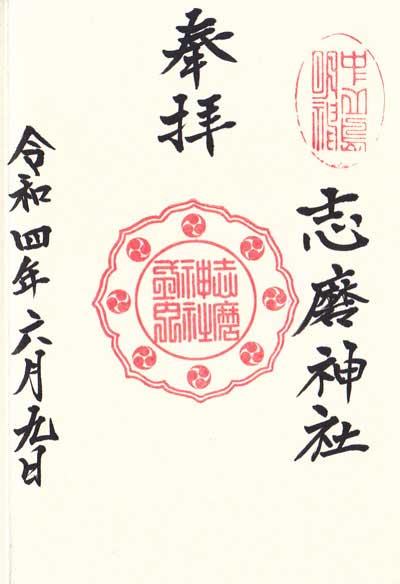 奉拝
中山嶌明神
志磨神社
志磨神社
令和四年六月九日